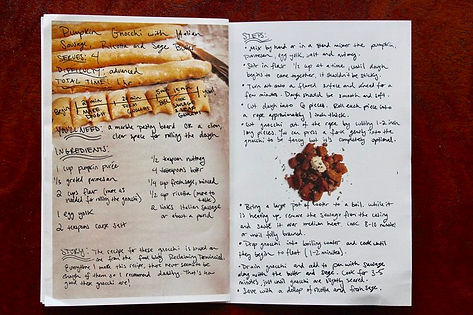 Pumpkin Gnocchi with Italian
Sausage, Ricotta and Sage Butter
SERVES: 4
DIFFICULTY: advanced
TOTAL TIME: 1 hr
Begin
YOU'LL NEED: a marble pastry board OR a clean,
clear space for rolling the dough
INGREDIENTS:
1 cup pumpkin purée
1/2 grated parmesan
2 cups flour (more as
needed for rolling the gnocchi)
1 egg yolk
2 teaspoons salt
1/2 teaspoon nutmeg
4 teaspoons butter
1/4 cup fresh sage, minced
1/2 cup ricotta (more to
taste)
2 links Italian sausage
or about a pound
STORY: The recipe for these gnocchi is based on
one from the food blog Reclaiming Provincial.
Everytime I make this recipe, there never seem to be
enough of them so I recommend doubling. That's how
good these gnocchi are!
STEPS:
• Mix by hand or in a stand mixer the pumpkin,
parmesan, egg yolk, salt and nutmeg.
• Stir in flour 1/2 cup at a time, until dough
begins to come together, it shouldn't be sticky.
• Turn out onto a floured surface and knead for a
few minutes. Dough should be smooth and soft.
• Cut dough into 6 pieces. Roll each piece into
a rope approximately 1 inch thick.
• Cut gnocchi out of the rope by cutting 1-inch
long pieces. You can press a fork gently into the
gnocchi to be fancy but it's completely optional.
• Bring a large pot of water to a boil. While it
is heating up, remove the sausage from the casing
and sauté it over medium heat. Cook 8-10 minutes
or until fully browned.
• Drop gnocchi into boiling water and cook until
they begin to float (1-2 minutes).
• Drain gnocchi and add to pan with sausage
along with the butter and sage. Cook for 3-5
minutes, just until gnocchi are slightly seared.
• Serve with a dollop of ricotta and fresh sage.